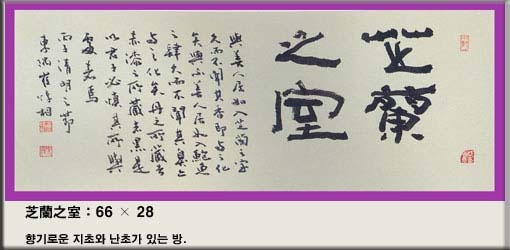 芝蘭
之室
與善人居如入芝蘭之室
久而不聞其香即與之化
矣與不善人居如入鮑魚
之肆久而不聞其臭亦
與之化矣丹之所藏者
赤漆之所藏者黑是
以君子必慎其所與
處者焉
丙子清明之節
芝蘭之室 : 66 × 28
향기로운 지초와 난초가 있는 방.